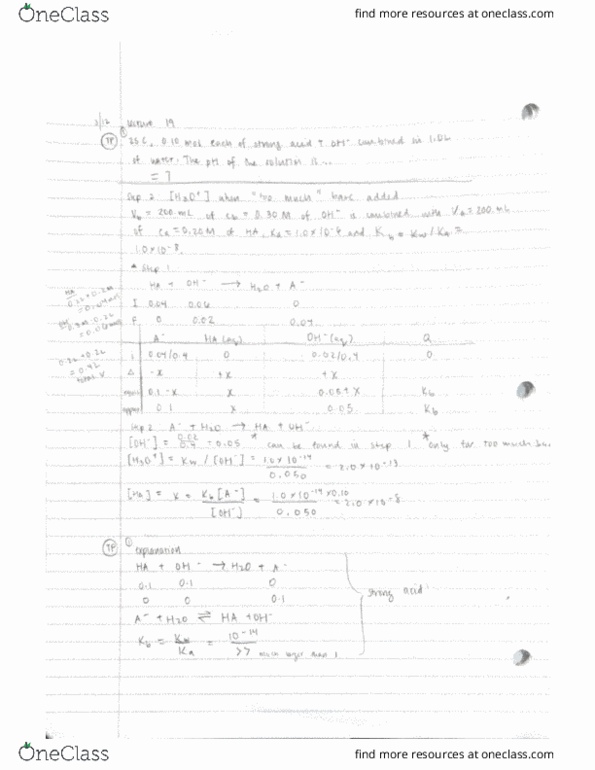 OneClass
find more resources at oneclass.com
3/12 Lecture 19
TP ① 25 C, 0.10 mol each of strong acid + OH⁻ combined in 1.0L
of water. The pH of the solution is...
= 7
Step 2 [H₃O⁺] when "too much" base added
V_b = 200 mL of c_b = 0.30 M of OH⁻ is combined with V_a = 200 mL
of c_a = 0.20M of HA, Ka = 1.0 × 10⁻⁶ and K_b = Kw / Ka =
1.0 × 10⁻⁸.
* Step 1
HA + OH⁻ → H₂O + A⁻
I 0.04 0.06 0
F 0 0.02 0.04
HA
OH
0.2L + 0.2L
total V
A⁻ HA (aq) OH⁻ (aq) Q
i 0.04/0.4 0 0.02/0.4 0
Δ -x +x +x
0.1 - x x 0.05 + x K_b
0.1 x 0.05 K_b
Step 2 A⁻ + H₂O → HA + OH⁻
[OH⁻] = 0.02/0.4 = 0.05 * can be found in step 1 * only for too much
[H₃O⁺] = Kw / [OH⁻] = 1.0 × 10⁻¹⁴ / 0.050 = 2.0 × 10⁻¹³
[HA] = x = K_b [A⁻] / [OH⁻] = 1.0 × 10⁻¹⁴ × 0.10 / 0.050 = 2.0 × 10⁻⁸
TP ① explanation
HA + OH⁻ → H₂O + A⁻
0.1 0.1 0
0 0 0.1
strong acid
A⁻ + H₂O ⇌ HA + OH⁻
K_b = Kw / Ka = 10⁻¹⁴ / >> much larger than 1
OneClass
find more resources at oneclass.com